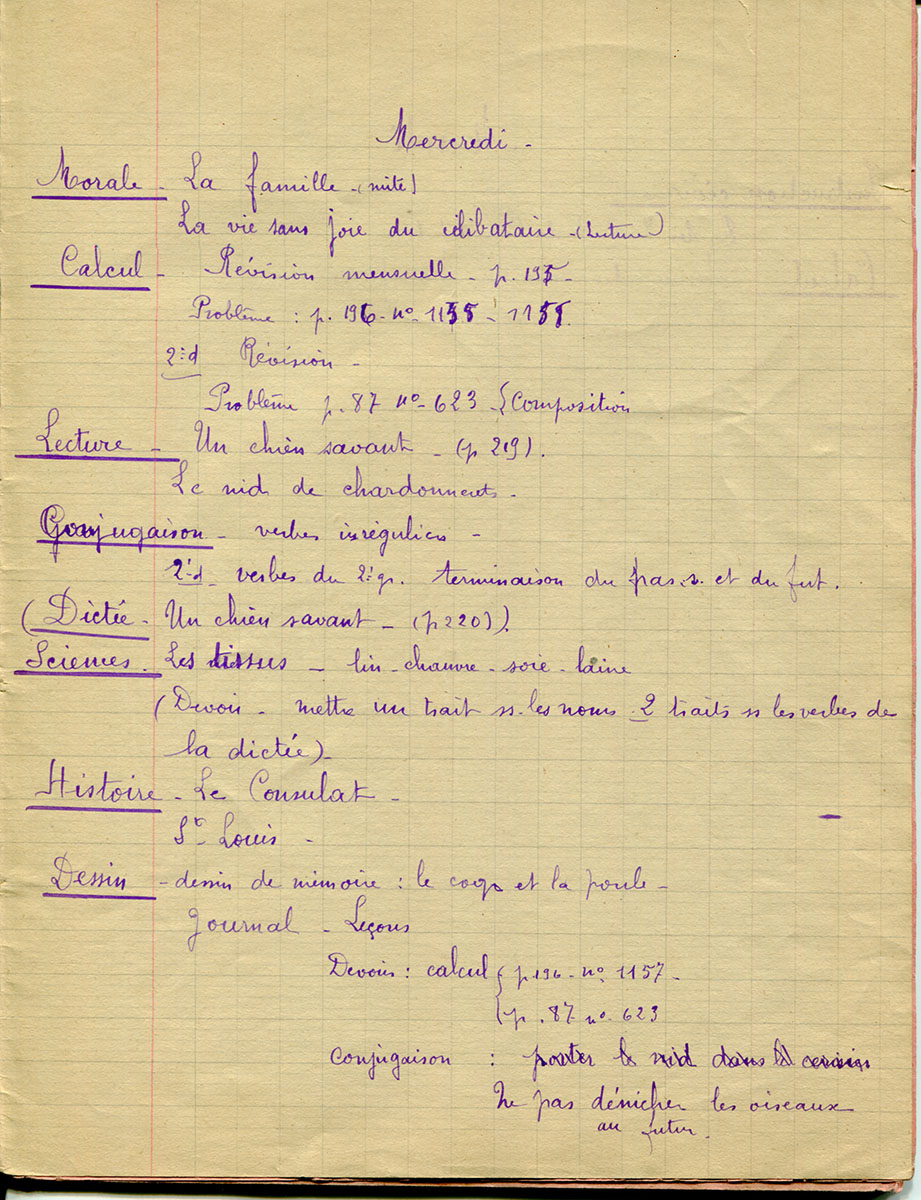 Mercredi -
Morale - La famille - (suite)
La vie sans joie du célibataire - (Lecture)
Calcul - Révision mensuelle - p. 195 -
Problème : p. 196 - no - 1155 - 1158.
2:d Révision -
Problème p. 87 no - 623 - {Composition
Lecture - Un chien savant - (p 219).
Le nid de chardonnerets -
Conjugaison - verbes irréguliers -
2:d verbes du 2: gr. terminaison du pas. s. et du fut.
(Dictée - Un chien savant - (p 220)).
Sciences - Les tissus - lin - chanvre - soie - laine
(Devoir - mettre un trait ss. les noms 2 traits ss les verbes de
la dictée) -
Histoire - Le Consulat -
St Louis -
Dessin - dessin de mémoire : le coq et la poule -
Journal - Leçons
Devoirs : calcul { p. 196 - no. 1157 -
{ p. 87 no. 623
Conjugaison : porter le nid dans le
Ne pas dénicher les oiseaux
au futur.